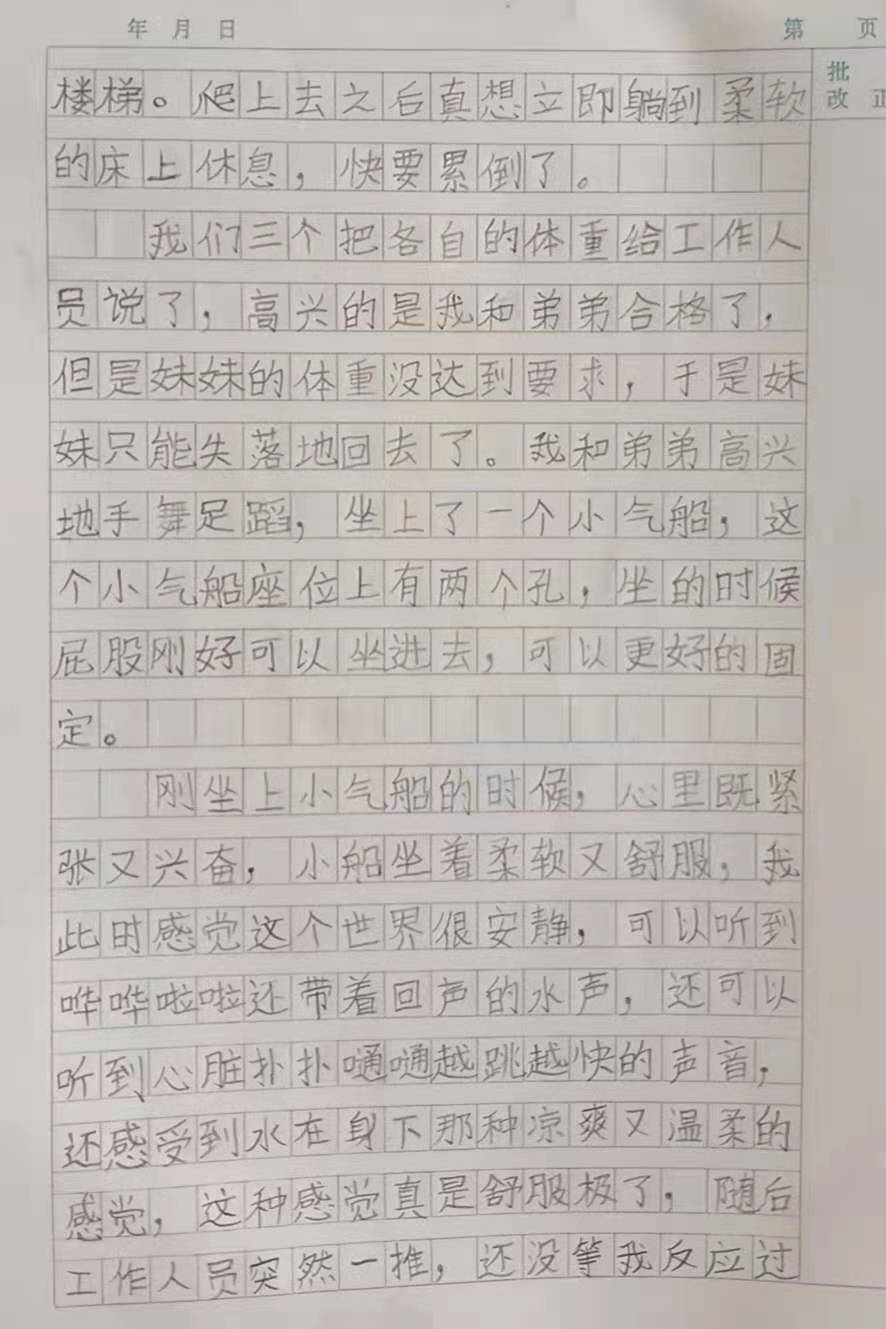 年 月 日 第 页
批
改 正
楼梯。爬上去之后真想立即躺到柔软
的床上休息，快要累倒了。
我们三个把各自的体重给工作人
员说了，高兴的是我和弟弟合格了，
但是妹妹的体重没达到要求，于是妹
妹只能失落地回去了。我和弟弟高兴
地手舞足蹈，坐上了一个小气船，这
个小气船座位上有两个孔，坐的时候
屁股刚好可以坐进去，可以更好的固
定。
刚坐上小气船的时候，心里既紧
张又兴奋，小船坐着柔软又舒服，我
此时感觉这个世界很安静，可以听到
哗哗啦啦还带着回声的水声，还可以
听到心脏扑扑嗵嗵越跳越快的声音，
还感受到水在身下那种凉爽又温柔的
感觉，这种感觉真是舒服极了，随后
工作人员突然一推，还没等我反应过